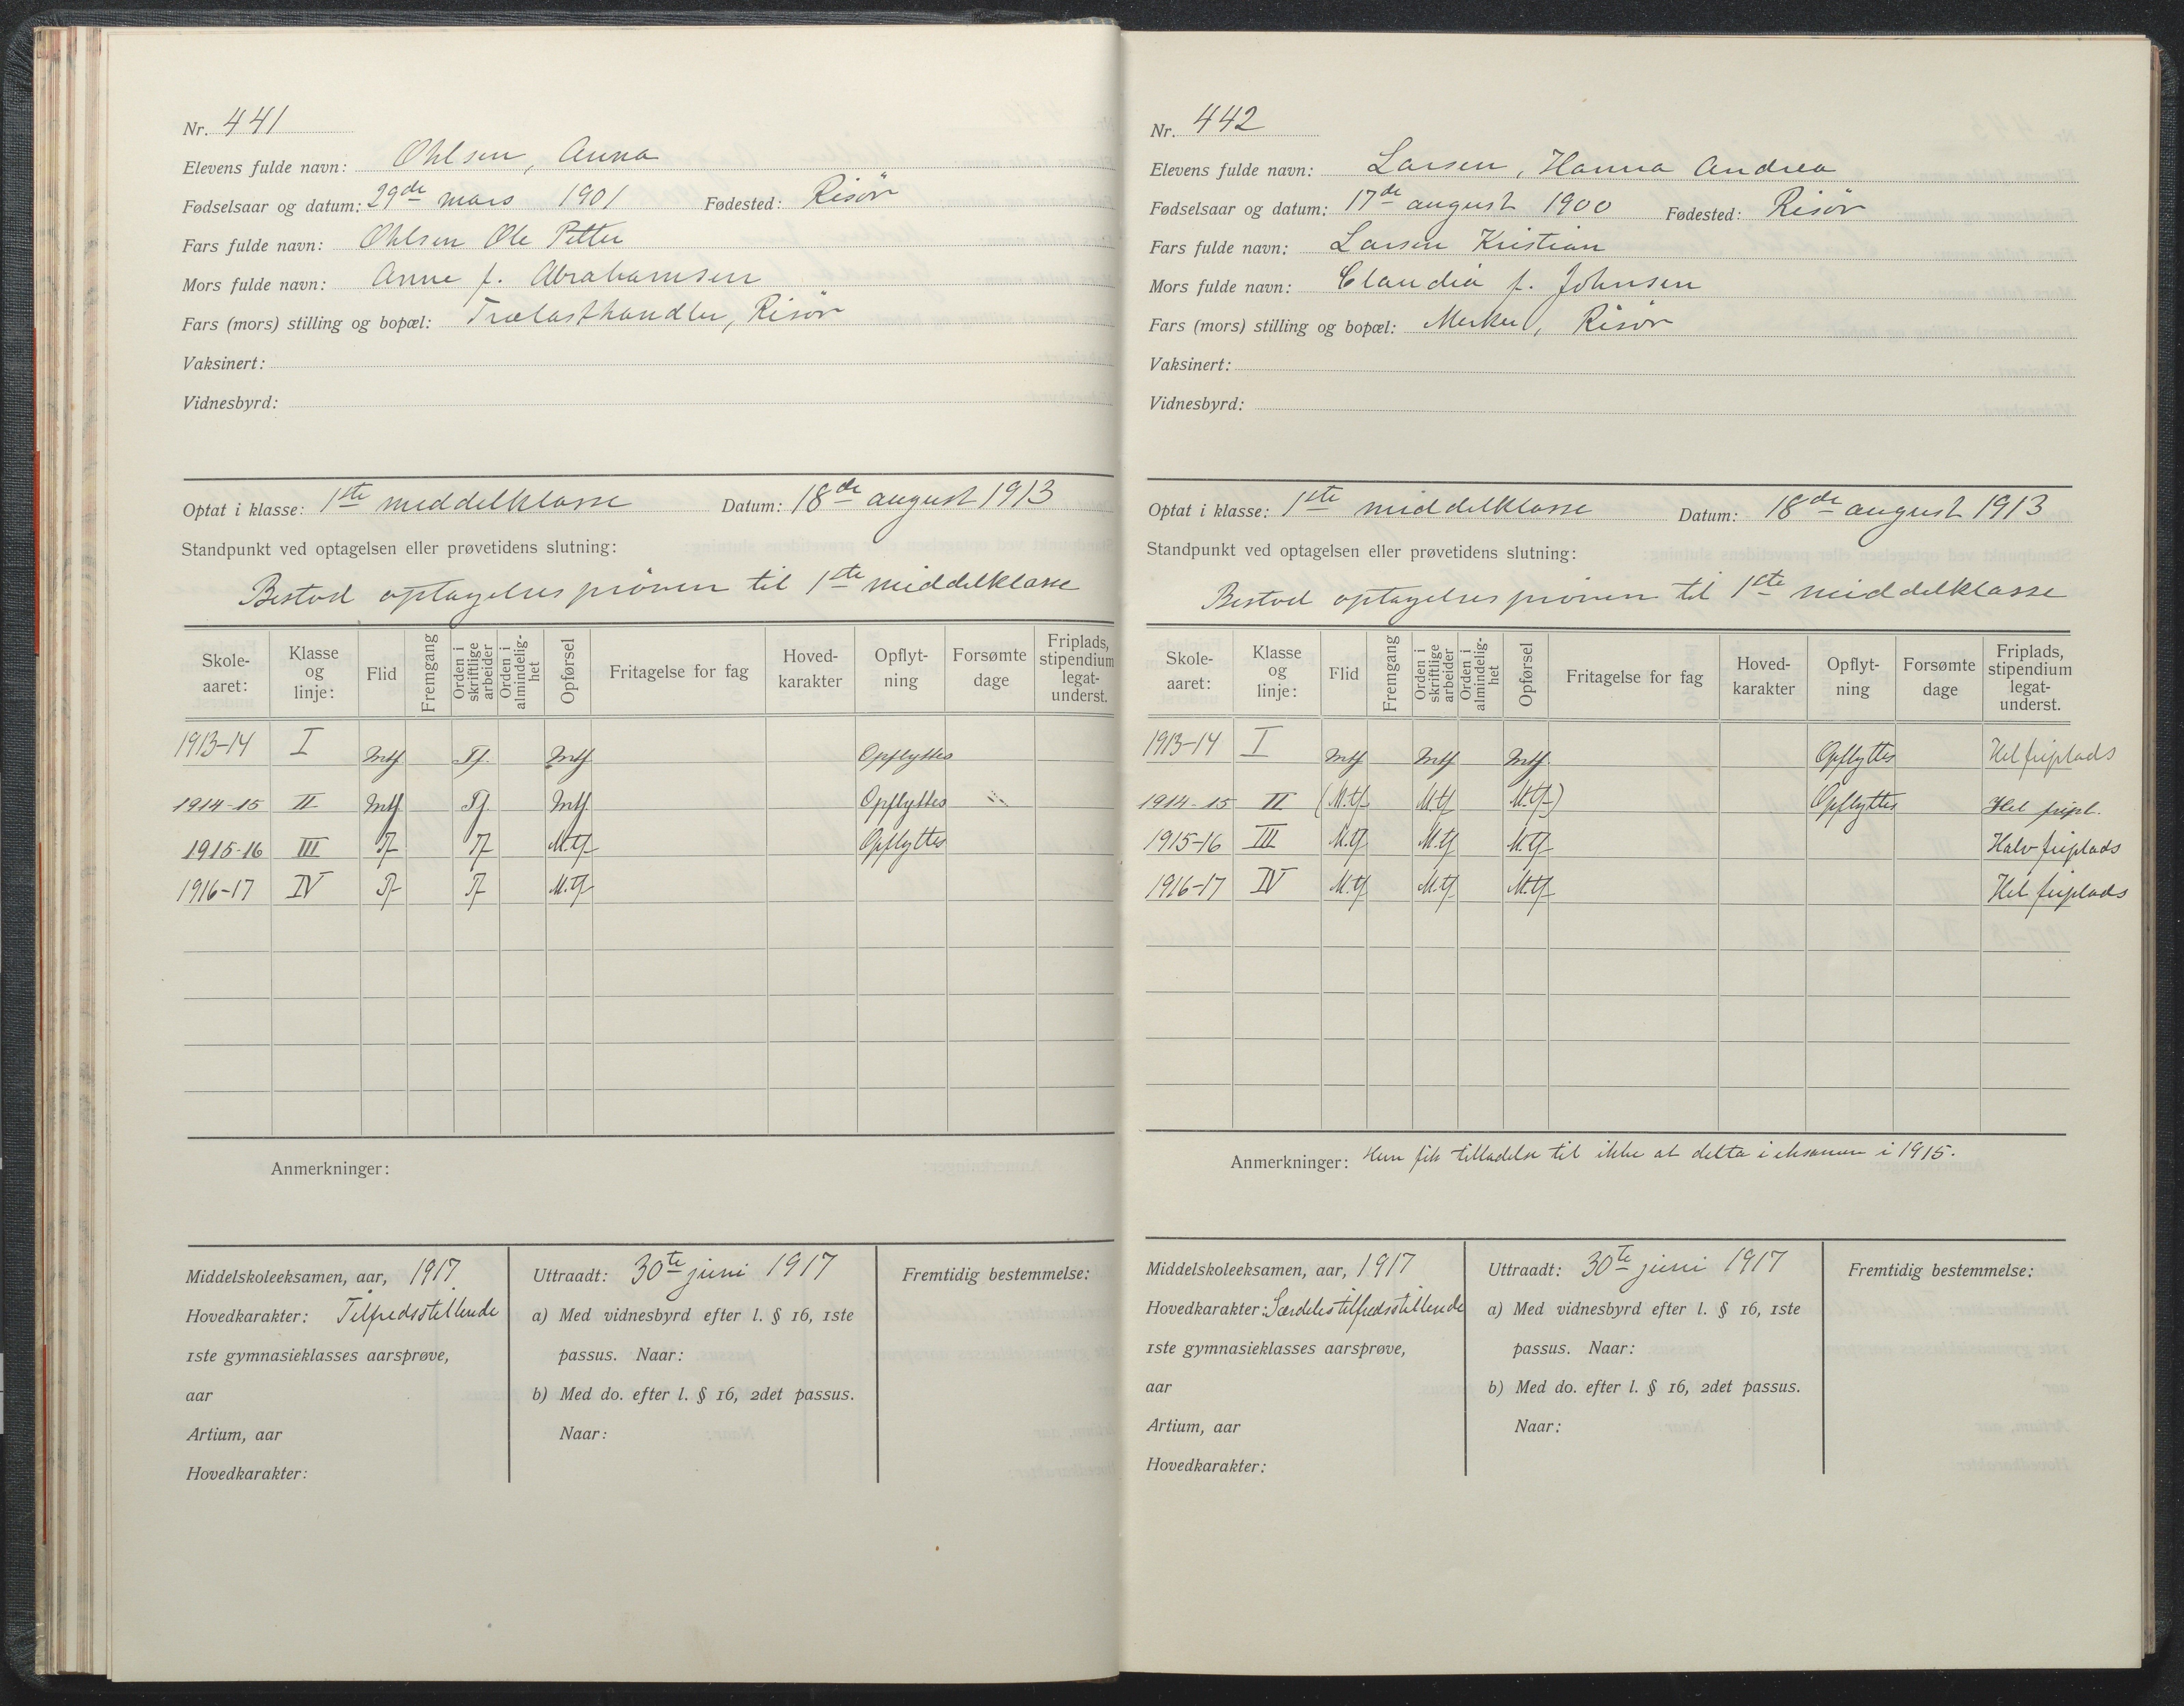 Nr. 441
Elevens fulde navn: Ohlsen, Anna
Fødselsaar og datum: 29de mars 1901 Fødested: Risör
Fars fulde navn: Ohlsen Ole Petter
Mors fulde navn: Anne f. Abrahamsen
Fars (mors) stilling og bopæl: Trælasthandler, Risör
Vaksinert:
Vidnesbyrd:
Optat i klasse: 1ste middelklasse Datum: 18de august 1913
Standpunkt ved optagelsen eller prøvetidens slutning:
Bestod optagelsesprøven til 1ste middelklasse
Skole-aaret: Klasse og linje: Flid Fremgang Orden i skriftlige arbeider Orden i almindelighet Opførsel Fritagelse for fag Hoved-karakter Opflyt-ning Forsømte dage Friplads, stipendium legat-underst.
1913-14 I Mtf Tf. Mtf Opflyttes
1914-15 II Mtf Tf. Mtf Opflyttes
1915-16 III Tf Tf M.tf Opflyttes
1916-17 IV Tf Tf M.tf
Anmerkninger:
Middelskoleeksamen, aar, 1917
Hovedkarakter: Tilfredsstillende
1ste gymnasieklasses aarsprøve,
aar
Artium, aar
Hovedkarakter:
Uttraadt: 30te juni 1917
a) Med vidnesbyrd efter l. § 16, 1ste
passus. Naar:
b) Med do. efter l. § 16, 2det passus.
Naar:
Fremtidig bestemmelse:
Nr. 442
Elevens fulde navn: Larsen, Hanna Andrea
Fødselsaar og datum: 17de august 1900 Fødested: Risör
Fars fulde navn: Larsen Kristian
Mors fulde navn: Claudia f. Johnsen
Fars (mors) stilling og bopæl: Risör
Vaksinert:
Vidnesbyrd:
Optat i klasse: 1ste middelklasse Datum: 18de august 1913
Standpunkt ved optagelsen eller prøvetidens slutning:
Bestod optagelsesprøven til 1ste middelklasse
Skole-aaret: Klasse og linje: Flid Fremgang Orden i skriftlige arbeider Orden i almindelighet Opførsel Fritagelse for fag Hoved-karakter Opflyt-ning Forsømte dage Friplads, stipendium legat-underst.
1913-14 I Mtf Mtf Mtf Opflyttes Hel friplads
1914-15 II (M.tf M.tf M.tf) Opflyttes Hel fripl.
1915-16 III M.tf M.tf M.tf Halv friplads
1916-17 IV M.tf M.tf M.tf Hel friplads
Anmerkninger: Hun fik tilladelse til ikke at delta i eksamen i 1915.
Middelskoleeksamen, aar, 1917
Hovedkarakter: Særdeles tilfredsstillende
1ste gymnasieklasses aarsprøve,
aar
Artium, aar
Hovedkarakter:
Uttraadt: 30te juni 1917
a) Med vidnesbyrd efter l. § 16, 1ste
passus. Naar:
b) Med do. efter l. § 16, 2det passus.
Naar:
Fremtidig bestemmelse: